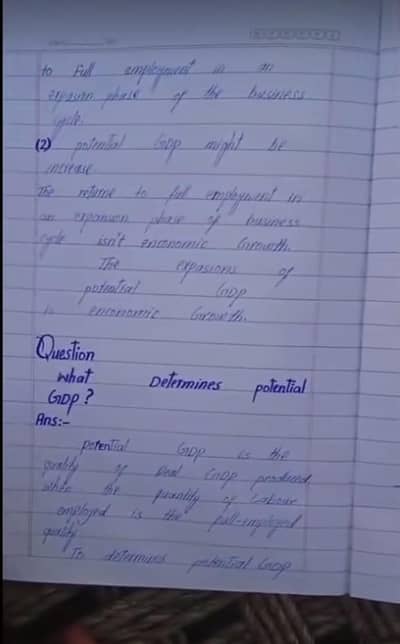 to Full employment in an
expasion phase of the business
cycle.
(2) potential GDP might be
increase
The returne to full employment in
an expansion phase of business
cycle isn't enconomic Growth.
The expasions of
potential GDP
is enconomic Growth.
Question
what Determines potential
GDP?
Ans:-
potential GDP is the
quality of Real GDP produced
when the quantity of Labour
employed is the full-employed
quality
To determind potential GDP